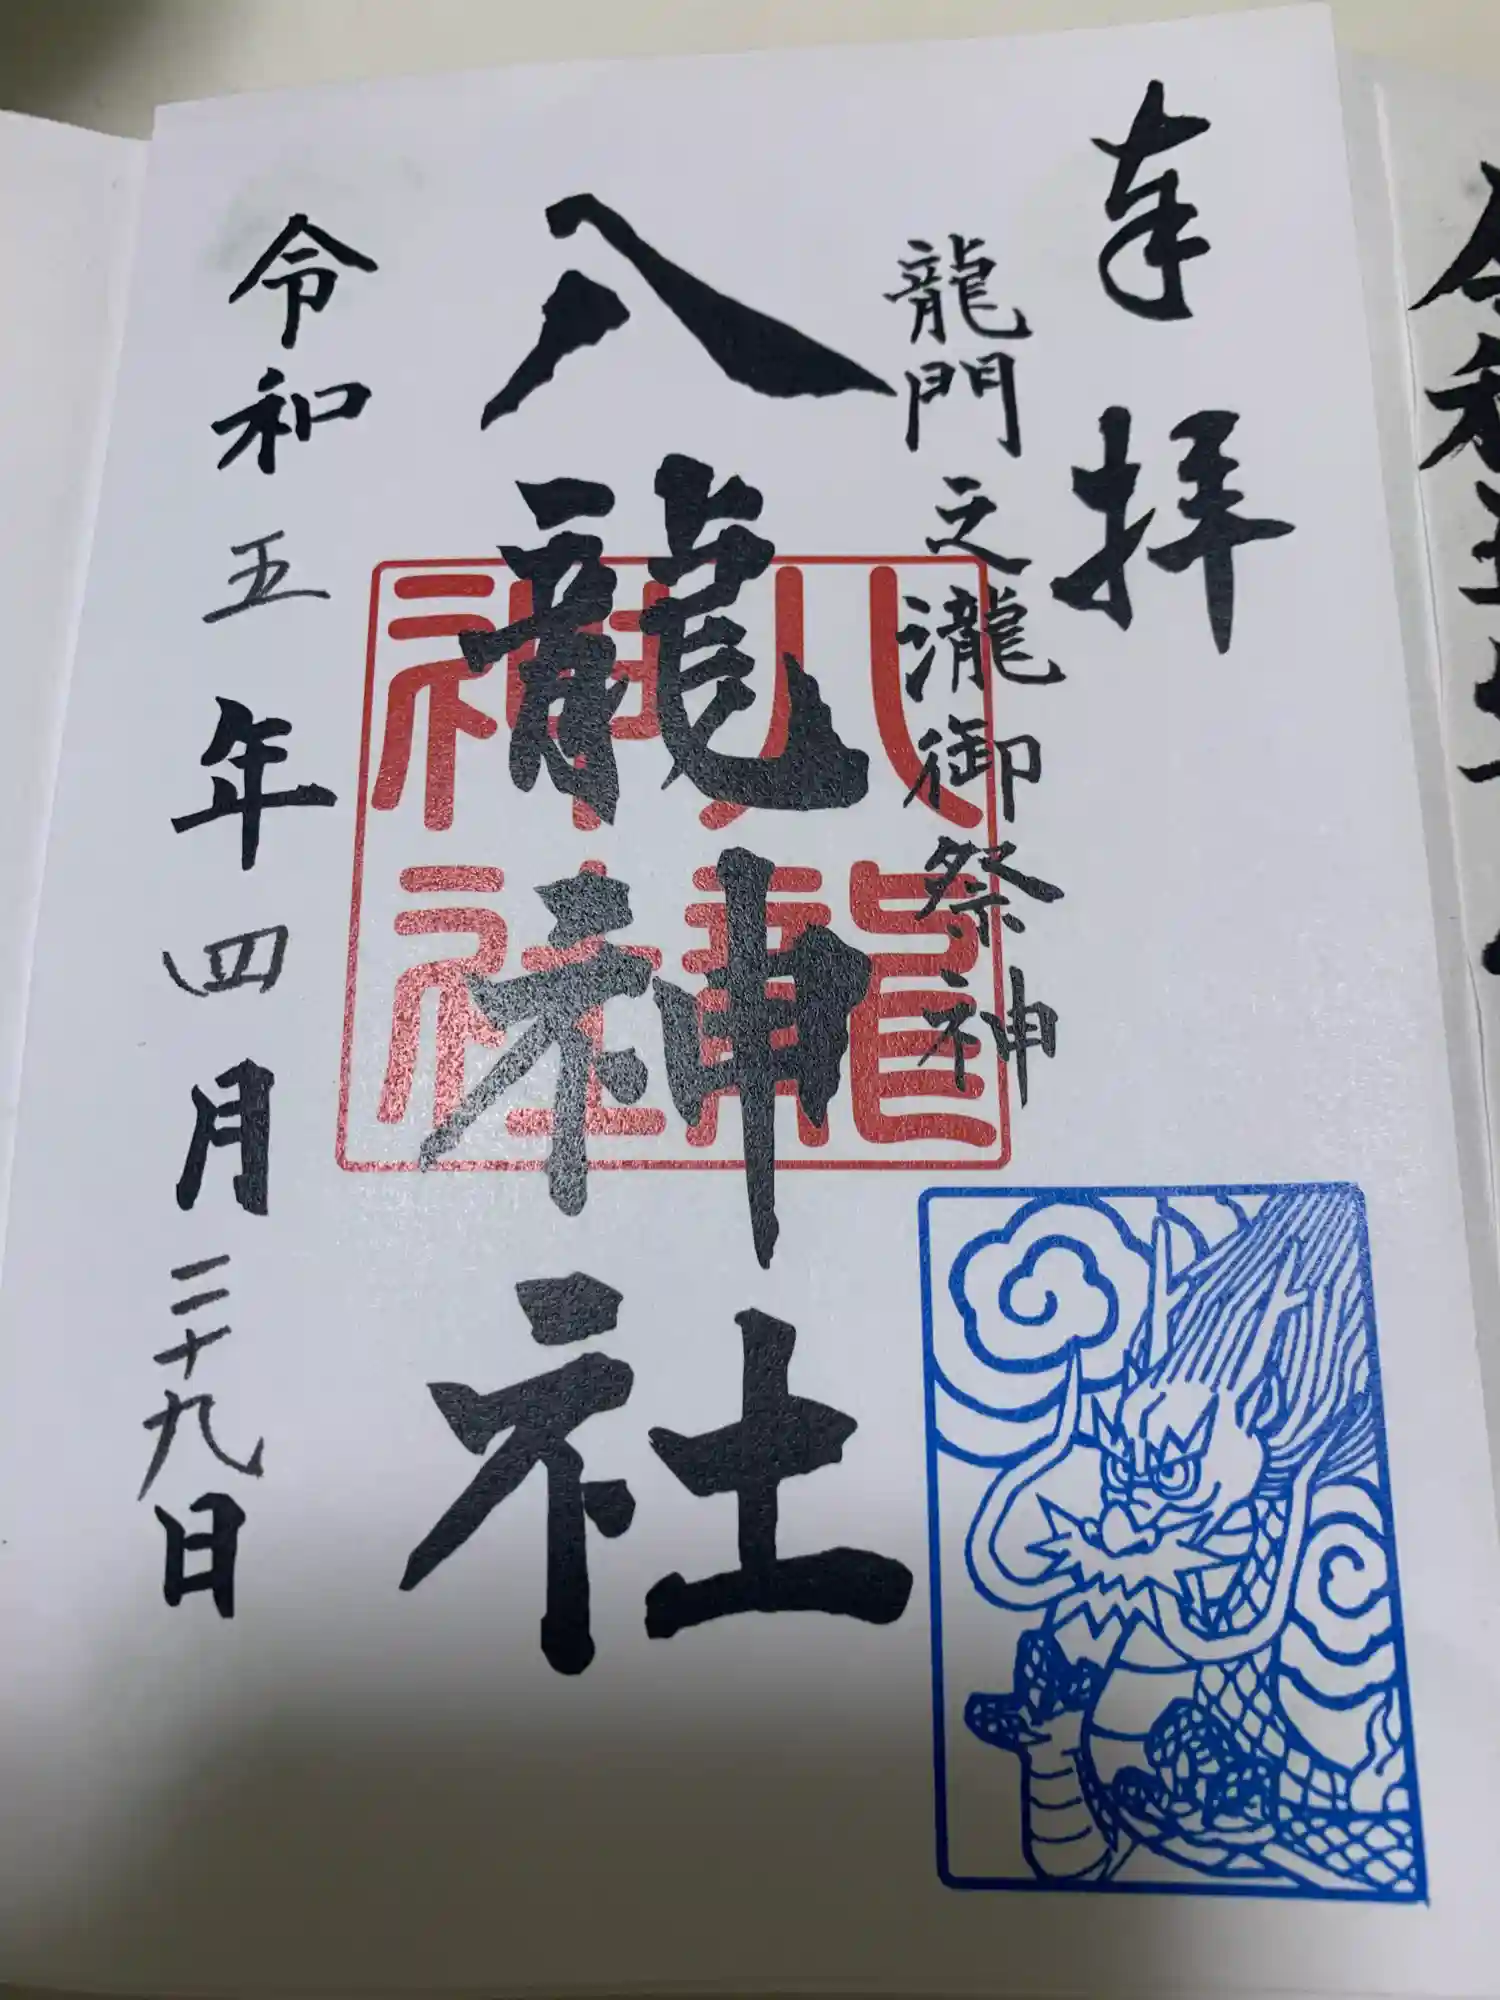 奉拝
龍門之瀧御祭神
八龍神社
八龍神社
令和五年四月二十九日
令和五年